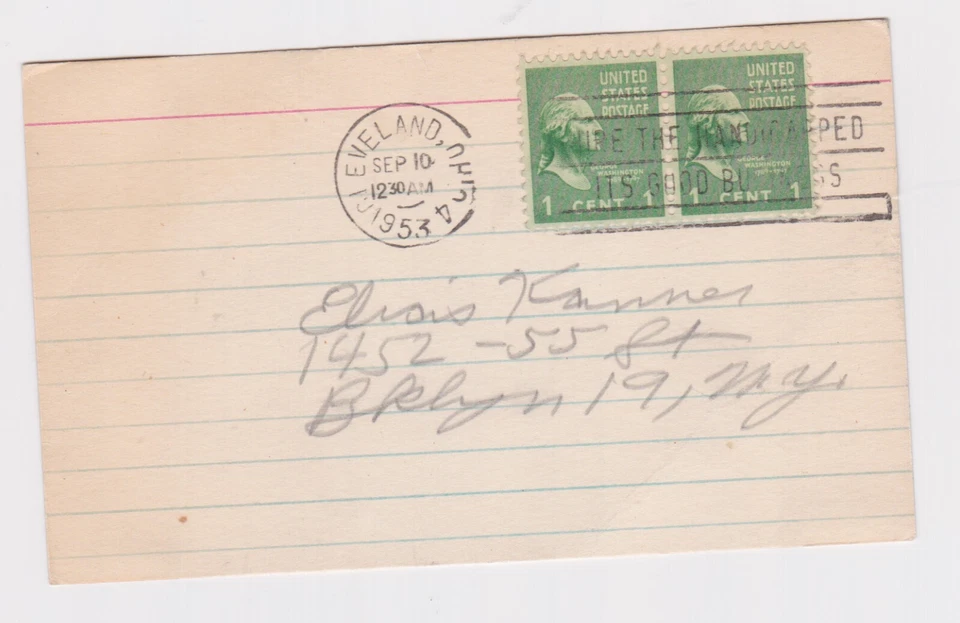 CLEVELAND, OHIO 4
SEP 10
12 30 AM
1953
UNITED STATES POSTAGE
GEORGE WASHINGTON
1 CENT 1
UNITED STATES POSTAGE
GEORGE WASHINGTON
1 CENT 1
THE HANDICAPPED
ITS GOOD BUSINESS
Kanner
1452 - 55 St
Bklyn 19, N.Y.